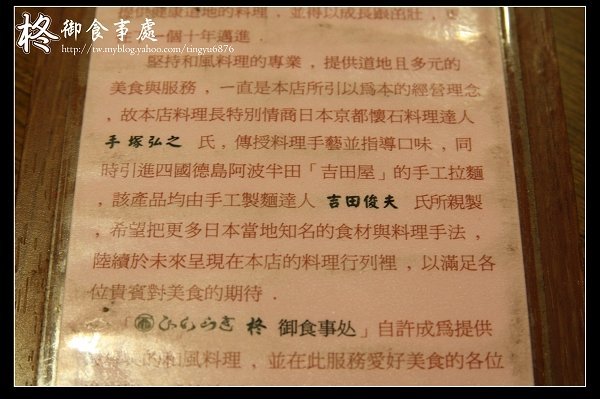 柊御食事處
http://tw.myblog.yahoo.com/tingyu6876
提供健康道地的料理，並得以成長茁壯，
一個十年邁進．
堅持和風料理的專業，提供道地且多元的
美食與服務，一直是本店所引以為本的經營理念
，故本店料理長特別情商日本京都懷石料理達人
手塚弘之 氏，傳授料理手藝並指導口味，同
時引進四國德島阿波半田「吉田屋」的手工拉麵
，該產品均由手工製麵達人 吉田俊夫 氏所親製
，希望把更多日本當地知名的食材與料理手法，
陸續於未來呈現在本店的料理行列裡，以滿足各
位貴賓對美食的期待．
「ひいらぎ 柊 御食事処」自許成為提供
的和風料理，並在此服務愛好美食的各位